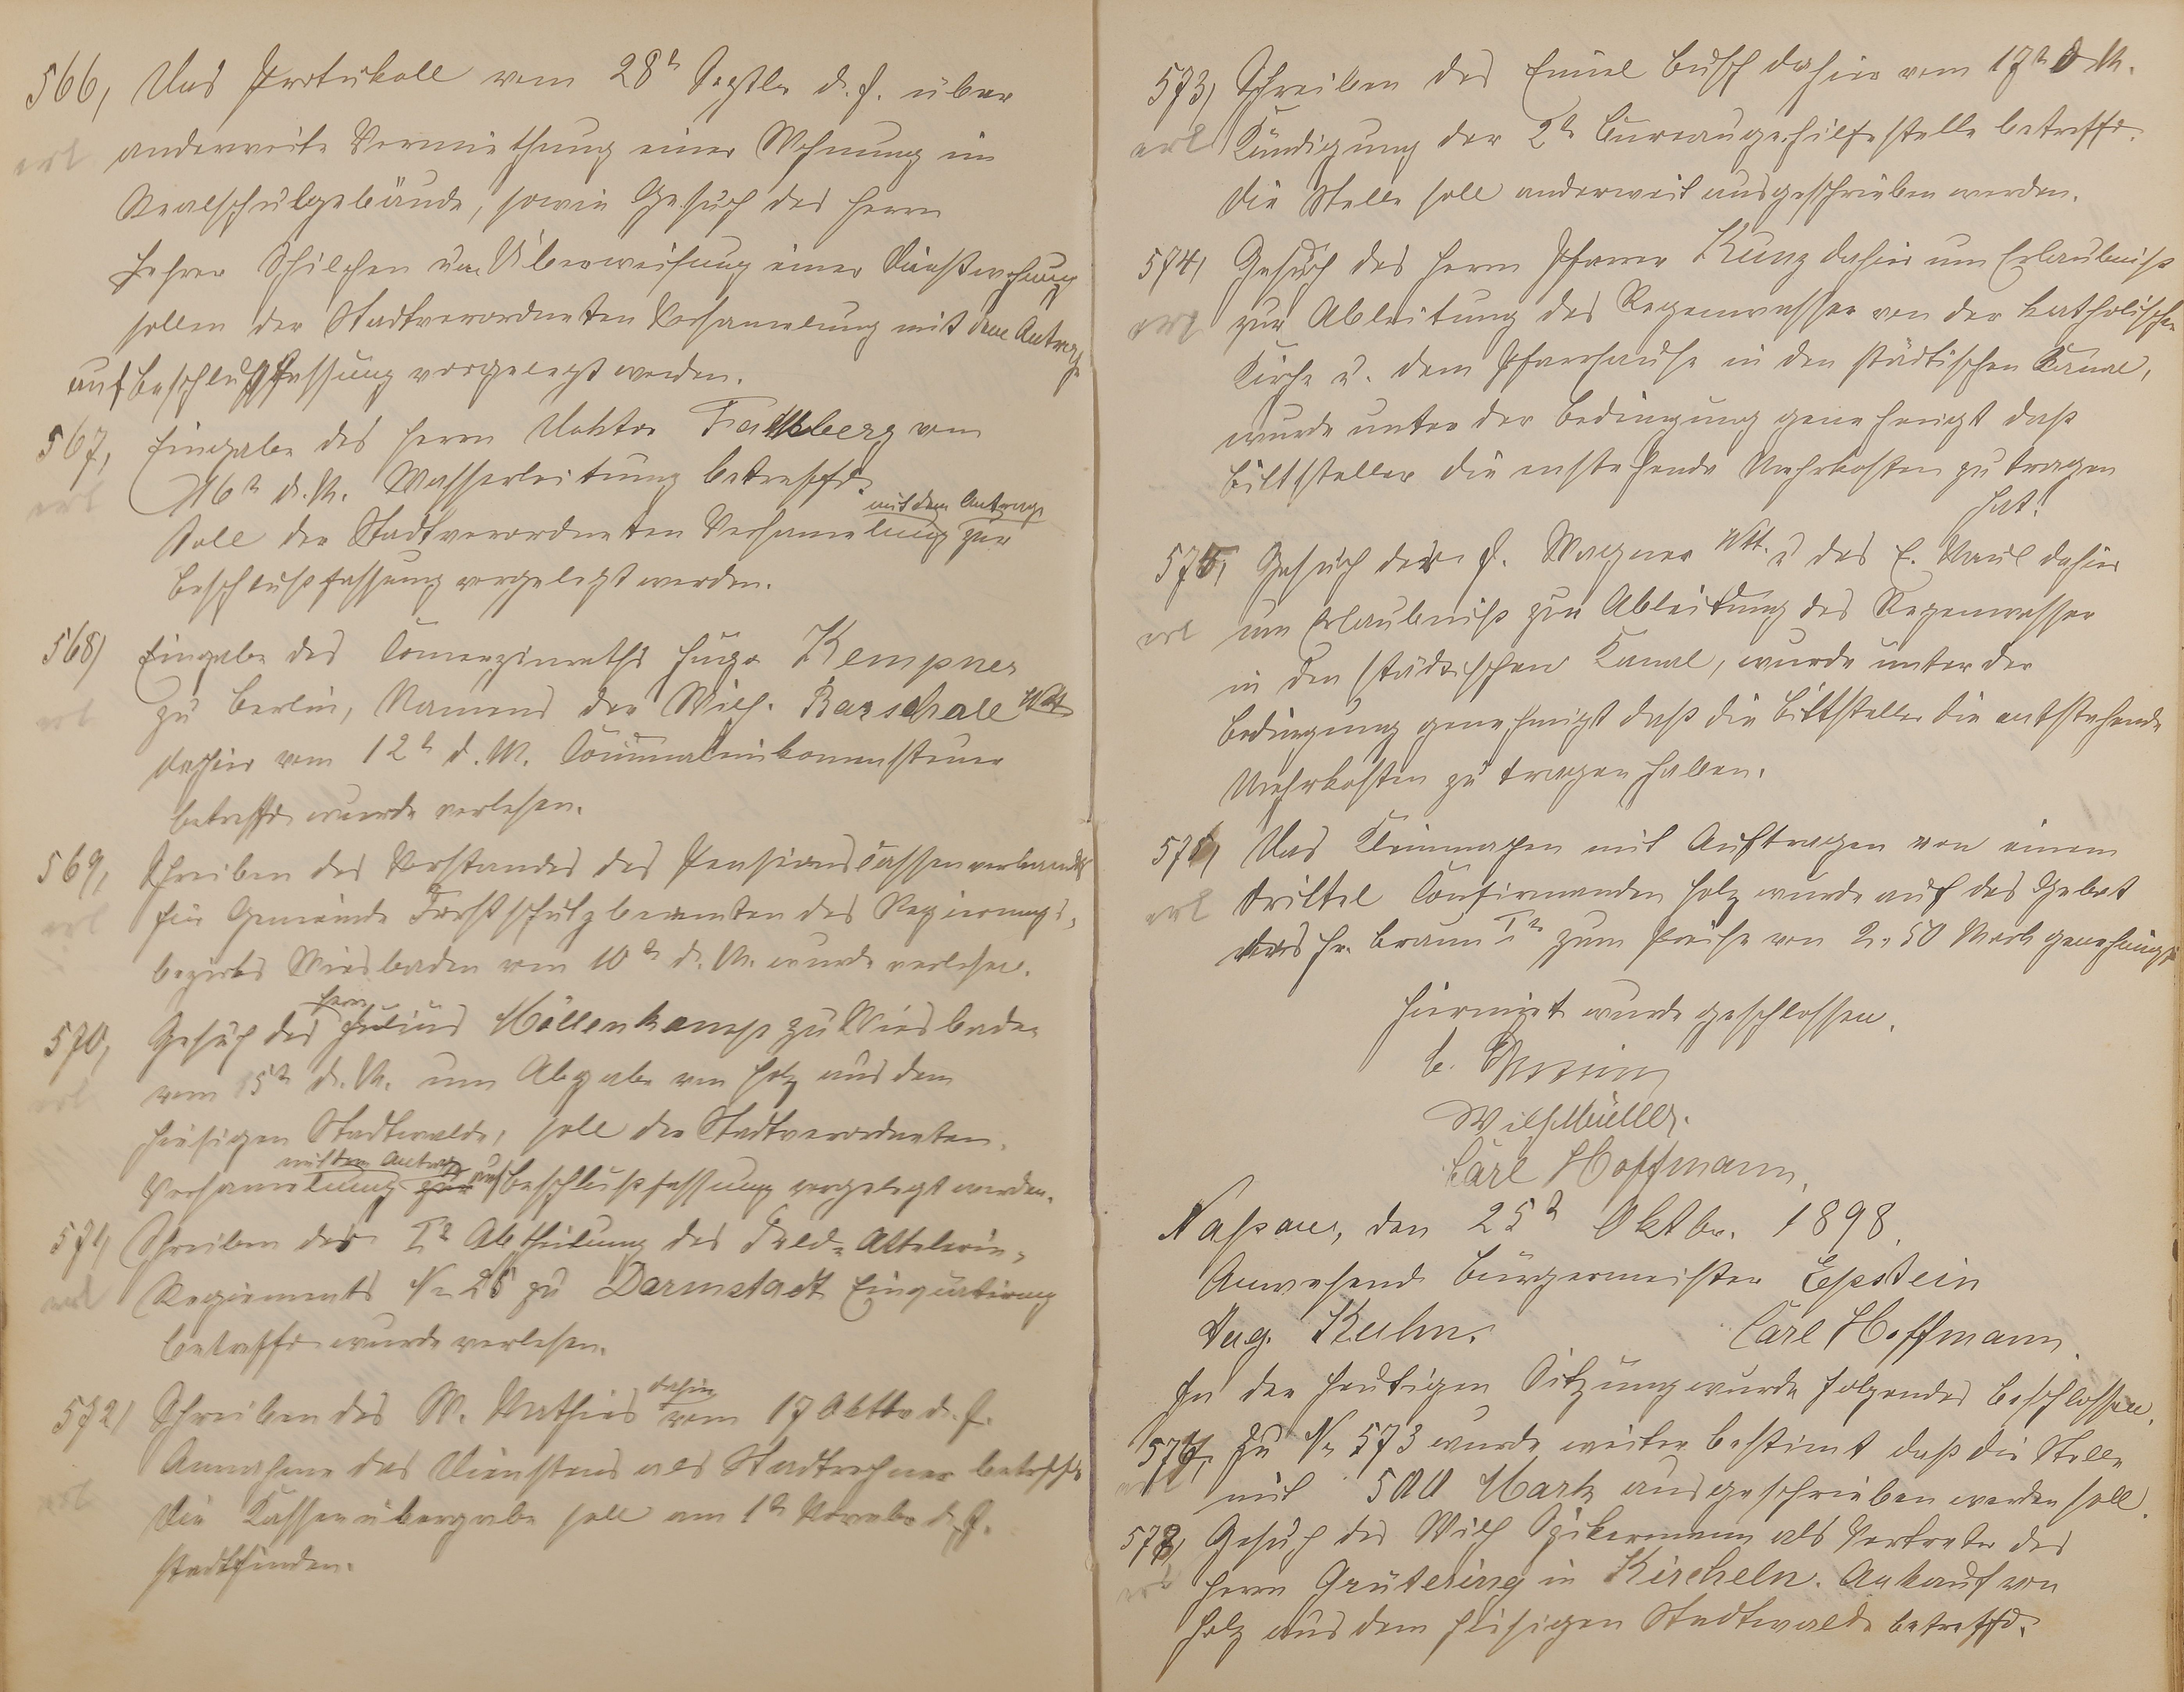 566, Das Protokoll vom 28t Septbr d. J. über
erl anderweite Vermiethung einer Wohnung im
Realschulgebäude, sowie Gesuch des Herrn
Lehrer Schilchen um Überweisung einer Dienstwohnung
sollen der Stadtverordneten Versammlung mit dem Antrage
auf Beschlußfassung vorgelegt werden.
567, Eingabe des Herrn Doktor vom
erl 16t d. M. Wasserleitung betreffd.
mit dem Antrage
Soll der Stadtverordneten Versammlung zur
Beschlußfassung vorgelegt werden.
568) Eingabe des Commerzienraths Hugo Kempner
erl zu Berlin, Namens der Wilh. Barschall Wtt
dahier vom 12t d. M. Communaleinkommensteuer
betreffd wurde verlesen.
569, Schreiben des Vorstandes des Pensionscassenverbands
erl für Gemeinde Forstschutzbeamten des Regierungs-
bezirks Wiesbaden vom 10t d. M. wurde verlesen.
Herrn
570, Gesuch des Julius Möllenkamp zu Wiesbaden
erl vom 15t d. M. um Abgabe von Holz aus dem
hiesigen Stadtwalde, soll der Stadtverordneten
mit dem Antrag
Versammlung zur auf Beschlußfassung vorgelegt werden.
571, Schreiben der It Abtheilung des Feld-Attelerie-
erl Regiements No 25 zu Darmstadt Einquatirung
betreffd wurde verlesen.
dahier
572) Schreiben des W. Mathies vom 17 Oktbr d. J.
Annahme des Dienstes als Stadtrechner betreffd
erl Die Kassenübergabe soll am 1t Novbr d. J.
stadtfinden.
573) Schreiben des Emiel Busch dahier vom 17t d M.
erl Kündigung der 2t Bureaugehilfestelle betreffd.
Die Stelle soll anderweit ausgeschrieben werden.
574) Gesuch des Herrn Pfarrer Kunz dahier um Erlaubniß
erl zur Ableitung des Regenwasser von der katholischen
Kirche u. dem Pfarrhause in den städtischen Kanal,
wurde unter der Bedingung genehmigt daß
Bittsteller die enstehende Mehrkosten zu tragen
hat!
575, Gesuch der J. Wagner Wtt. u des E. Paul dahier
erl um Erlaubniß zur Ableitung des Regenwasser
in den städtischen Kanal, wurde unter der
Bedingung genehmigt daß die Bittsteller die entstehende
Mehrkosten zu tragen haben.
576, Das Kleinmachen mit Auftragen von einem
erl drittel Confirmanden Holz wurde auf das Gebot
des Hr. Braun It zum Preise von 2,50 Mark genehmigt
Hiermit wurde geschlossen.
Wilh Müller.
Carl Hoffmann.
Naßau, den 25t Oktbr. 1898.
Anwesend Bürgermeister Epstein
Aug. Kuhn. Carl Hoffmann.
In der heutigen Sitzung wurde folgendes beschlossen.
577, Zu No 573 wurde weiter bestimt daß die Stelle
erl mit 500 Mark ausgeschrieben werden soll.
578, Gesuch des Wilh Spikermann als Vertreter des
erl Herrn Grütering in Kircheln. Ankauf von
Holz aus dem hiesigen Stadtwalde betreffd.